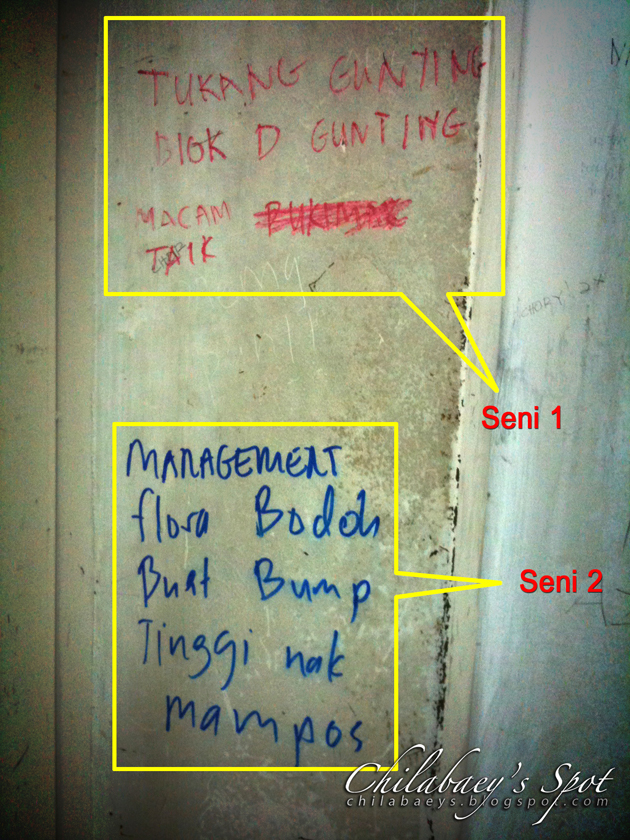 TUKANG GUNTING
BlOK D GUNTING
MACAM
TAIK
omg
Seni 1
MANAGEMENT
flora Bodoh
Buat Bump
Tinggi nak
mampos
Seni 2
Chilabaey's Spot
chilabaeys.blogspot.com